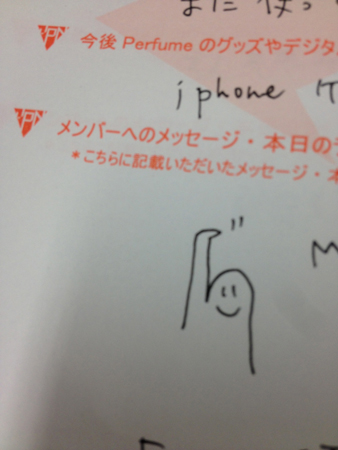 また使っ
今後 Perfume のグッズやデジタ
iphone ケ
メンバーへのメッセージ・本日の
*こちらに記載いただいたメッセージ・本
M